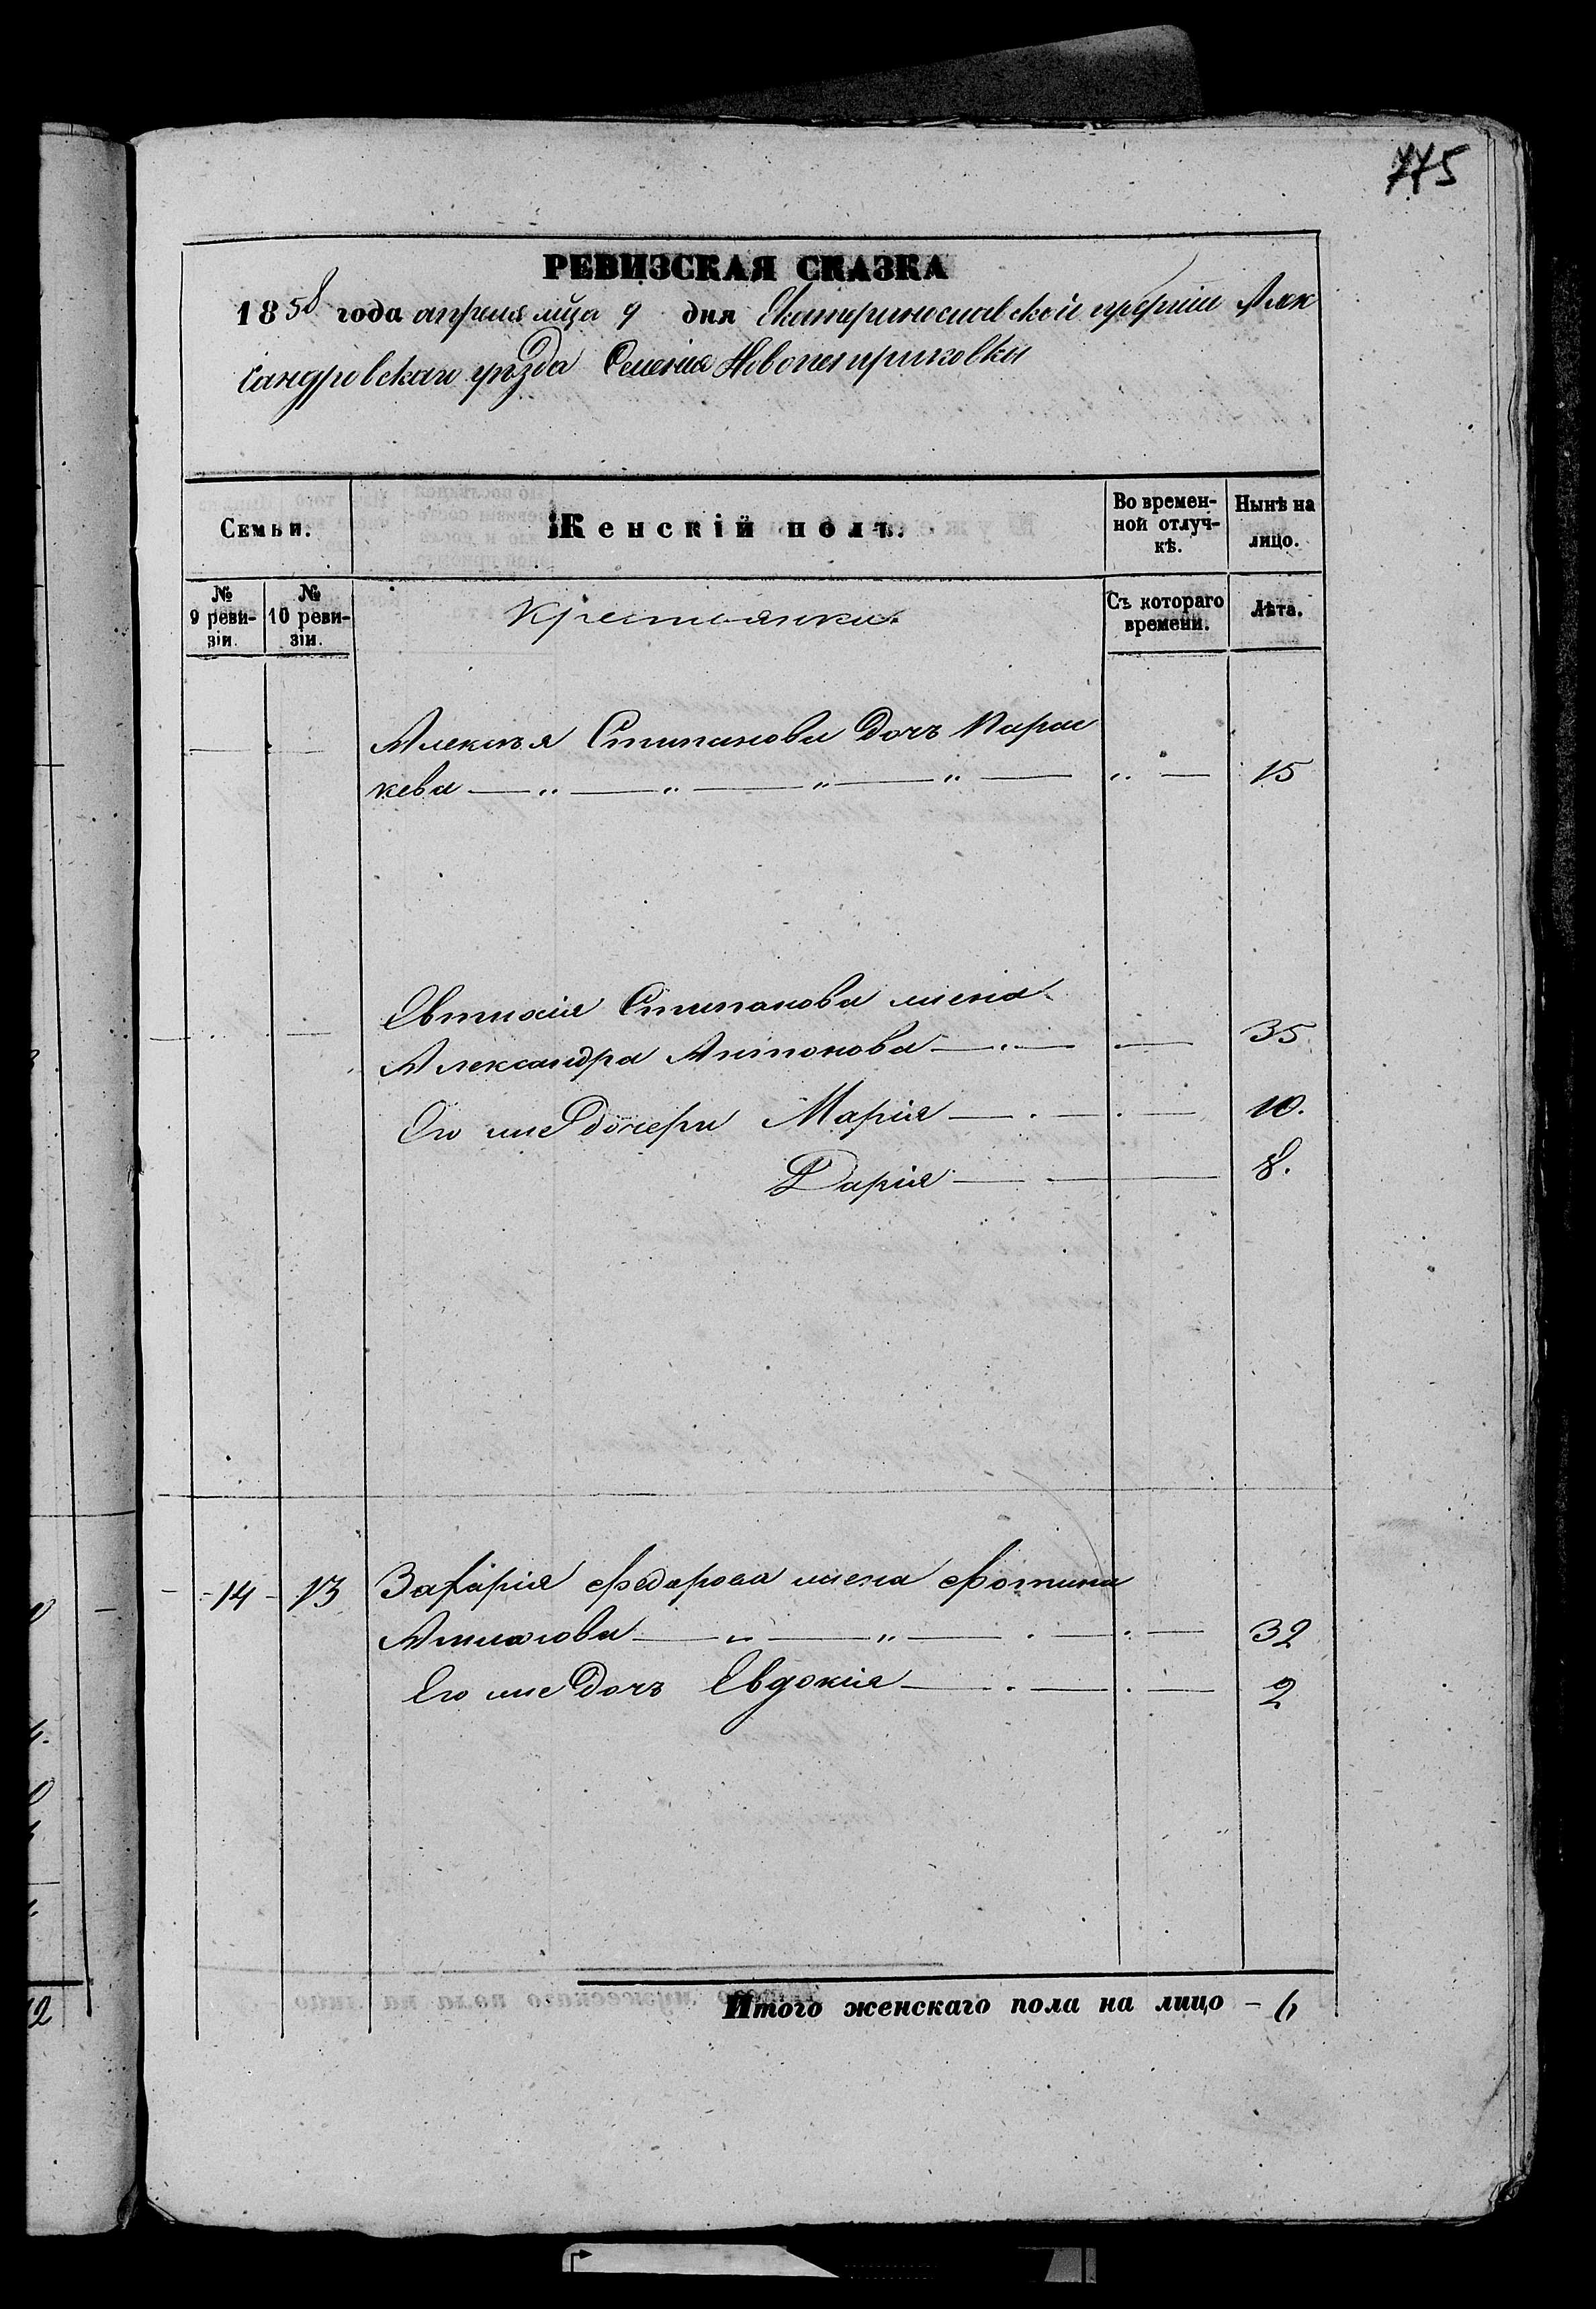 775
РЕВИЗСКАЯ СКАЗКА
1858 года апреля мца 9 дня Екатеринославской губерніи Алек
сандровскаго уѣзда Селенія Новопетриковки
Семьи.
Женскій полъ.
Во времен-
ной отлуч-
кѣ.
Нынѣ на
лицо.
№
9 реви-
зіи.
№
10 реви-
зіи.
Крестьянки.
Съ котораго
времени.
Лѣта.
Алексѣя Степанова дочь Парас
кева — „ — „ — „ — „ — „ — 15
Евтихія Степанова жена
Александра Антонова — 35
Его же дочери Марія — 10.
Дарія — 8.
14 - 13 Захарія Федорова жена Фотина
— „ — „ — 32
Его же дочь Евдокія — 2
Итого женскаго пола на лицо - 6